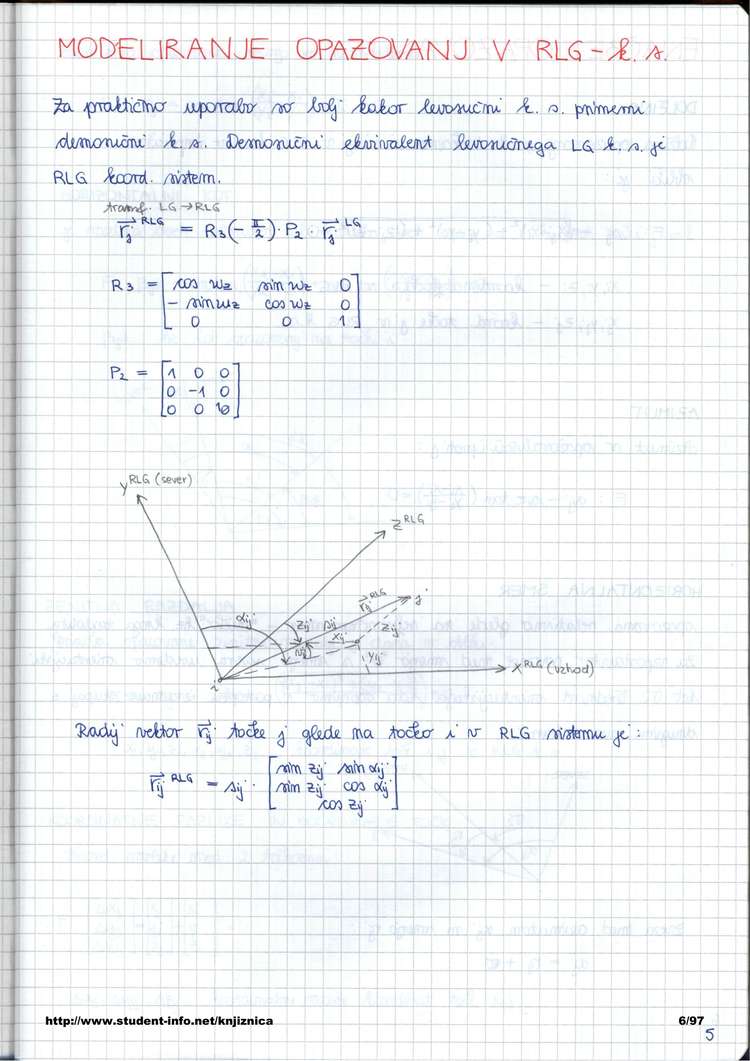 MODELIRANJE OPAZOVANJ V RLG - k. s.
Za praktično uporabo so bolj kakor levosučni k. s. primerni
desnosučni k. s. Desnosučni ekvivalent levosučnega LG k. s. je
RLG koord. sistem.
transf. LG → RLG
r⃗j RLG = R3(-π/2) · P2 · r⃗j LG
R3 = [cos wz sin wz 0
- sin wz cos wz 0
0 0 1]
P2 = [1 0 0
0 -1 0
0 0 1]
y RLG (sever)
z RLG
r⃗ij RLG
j
αij
zij
sij
zij
xij
νij
yij
x RLG (vzhod)
i
Radij vektor r⃗j točke j glede na točko i v RLG sistemu je:
r⃗ij RLG = sij · [sin zij sin αij
sin zij cos αij
cos zij]
http://www.student-info.net/knjiznica
6/97
5